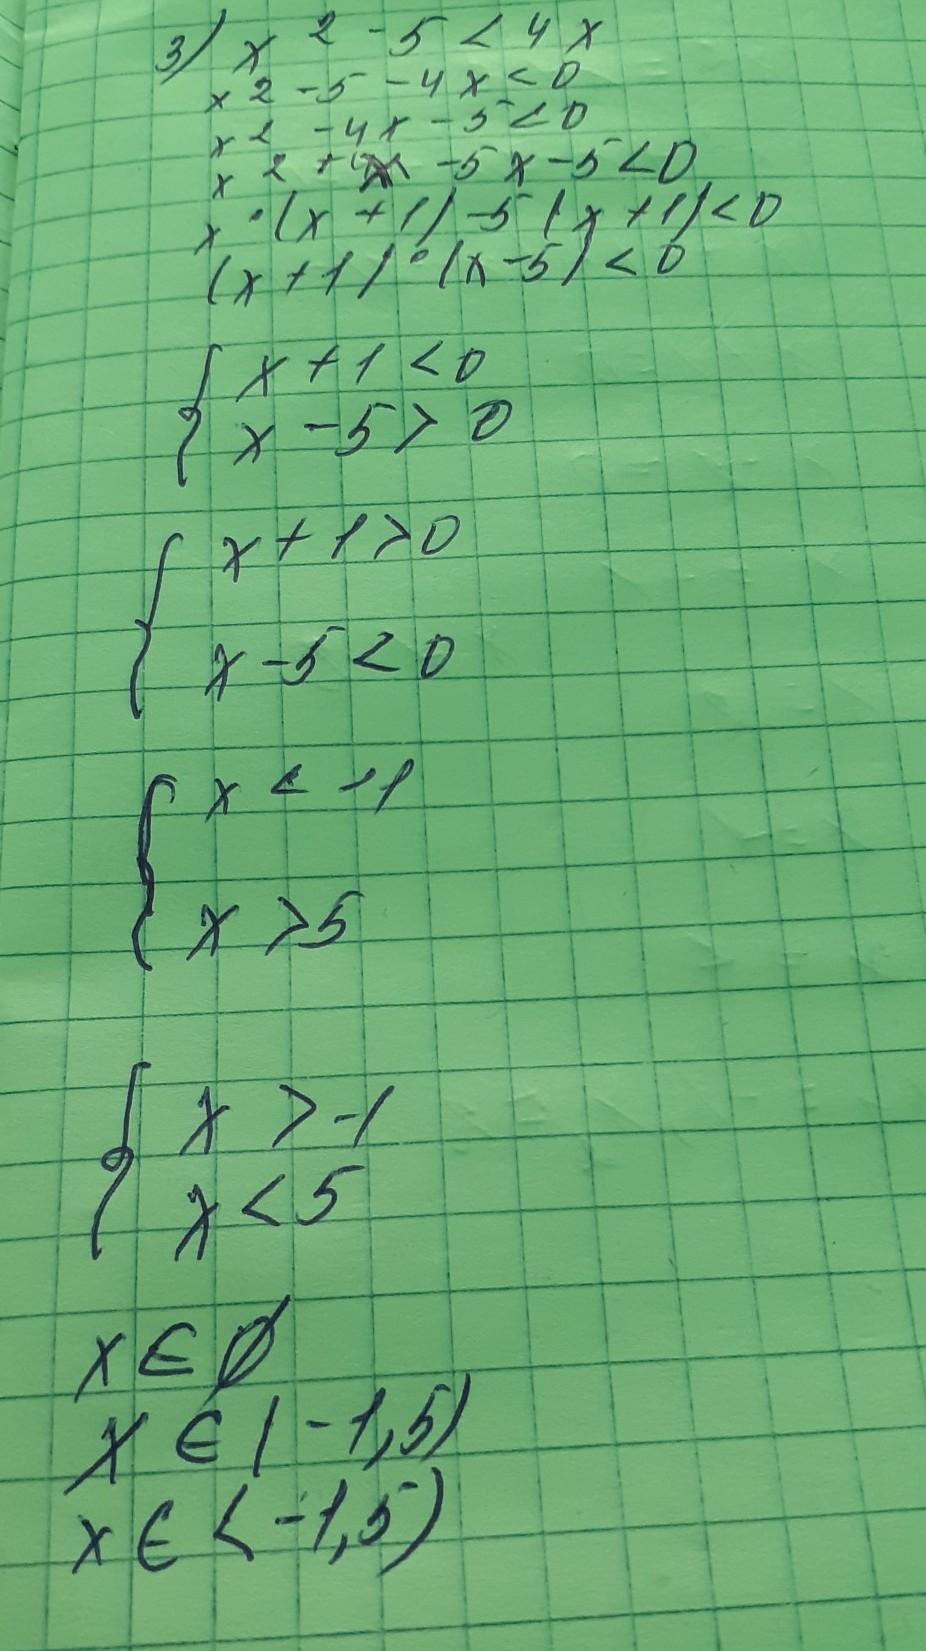 3) x 2 - 5 < 4 x
x 2 - 5 - 4 x < 0
x 2 - 4 x - 5 < 0
x 2 + x - 5 x - 5 < 0
x · (x + 1) - 5 (x + 1) < 0
(x + 1) · (x - 5) < 0
{ x + 1 < 0
x - 5 > 0
{ x + 1 > 0
x - 5 < 0
{ x < -1
x > 5
{ x > -1
x < 5
x ∈ ∅
x ∈ ( -1, 5)
x ∈ < -1, 5)